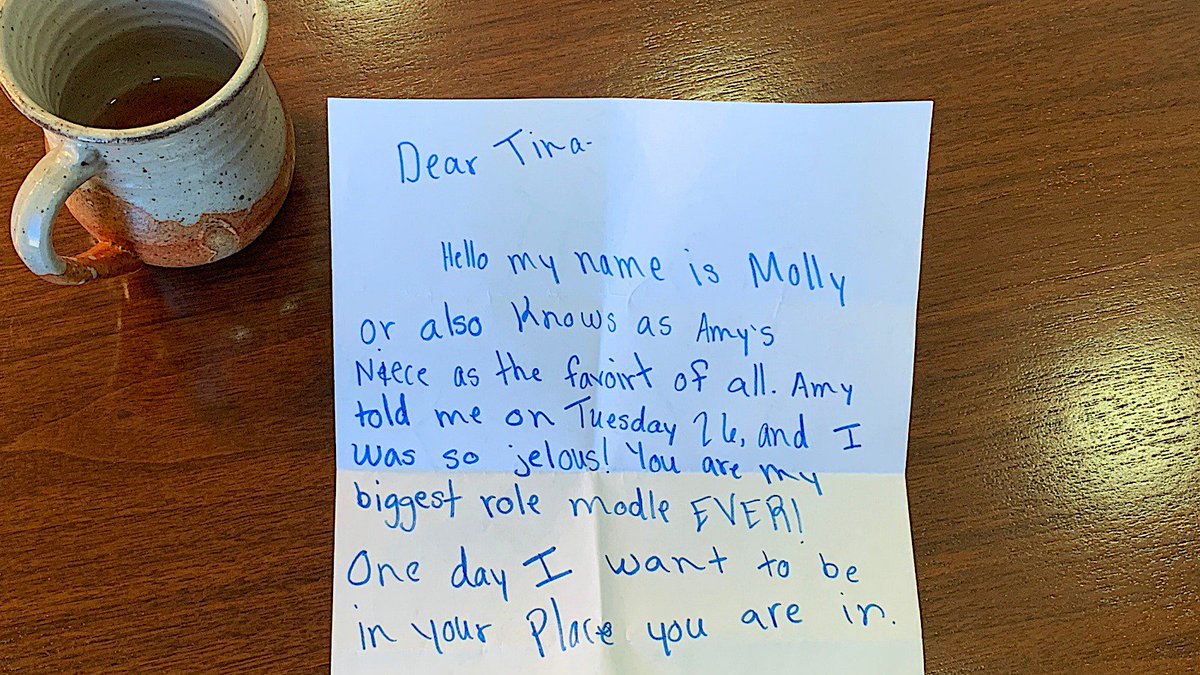 Dear Tina-
Hello my name is Molly
or also Knows as Amy's
Niece as the favoirt of all. Amy
told me on Tuesday 26, and I
was so jelous! You are my
biggest role modle EVER!
One day I want to be
in your Place you are in.